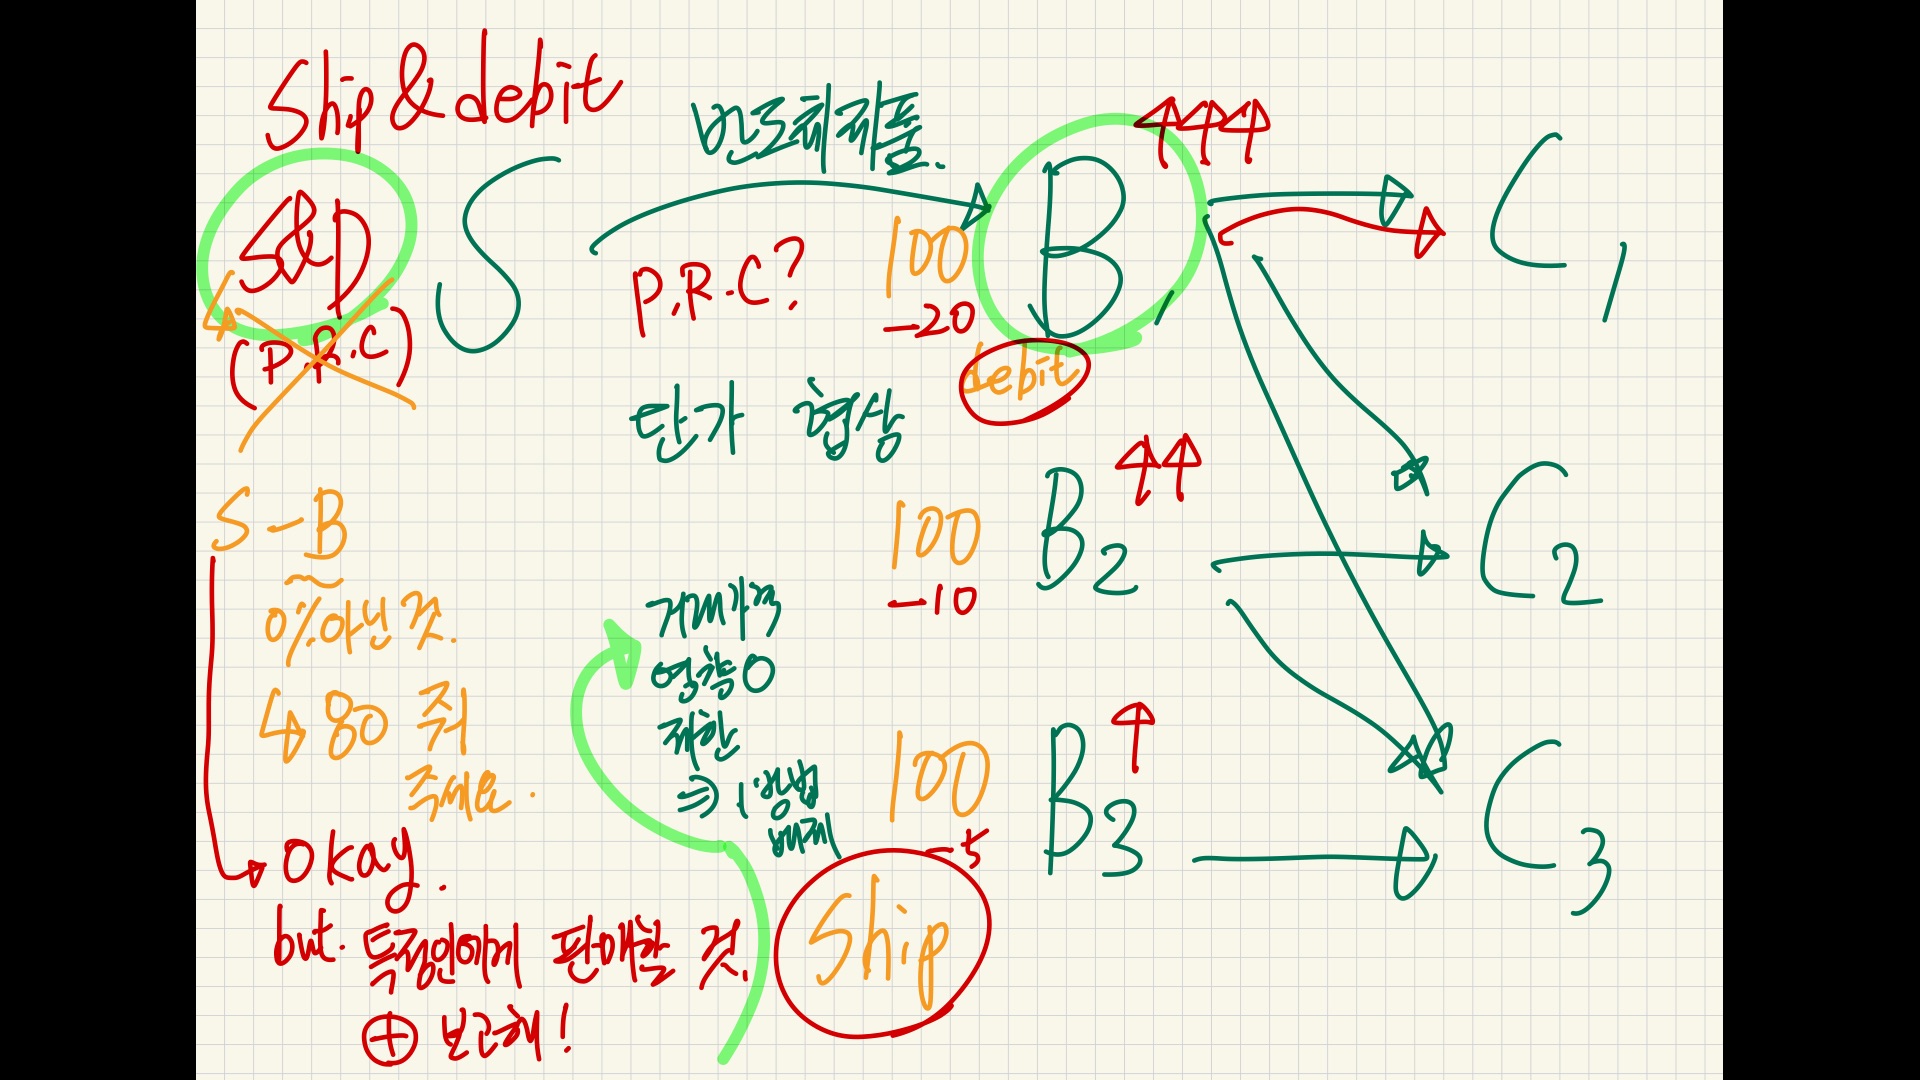 Ship & debit
S&D
(P.R.C)
S
반도체 제품.
P.R.C?
단가 협상
100
-20
B
debit
C1
S - B
0%아닌 것.
↳ 80 줘
주세요.
okay.
but. 특정인에게 판매할 것.
⊕ 보고해!
거래가격
영향 O
제한
100
-10
B2
C2
100
-5
B3
C3
Ship